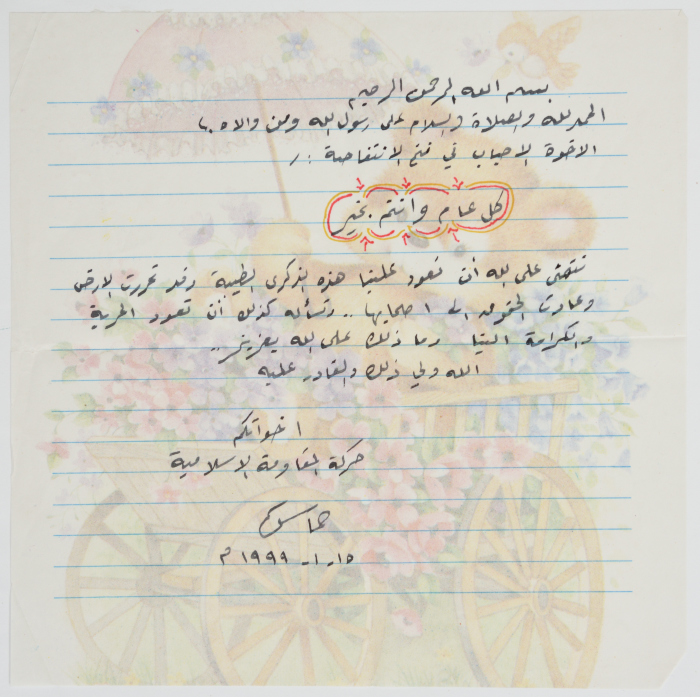 بسم الله الرحمن الرحيم
الحمد لله والصلاة والسلام على رسول الله ومن والاه
الاخوة الاحباب في فتح الانتفاضة :/
كل عام وانتم بخير
نتمنى على الله ان تعود علينا هذه الذكرى الطيبة وقد تحررت الارض
وعادت الحقوق الى اصحابها .. ونسأله كذلك أن تعود الحرية
والكرامة الينا وما ذلك على الله بعزيز ..
الله ولي ذلك والقادر عليه
اخوانكم
حركة المقاومة الاسلامية
حماس
١٥ـ١ـ١٩٩٩م